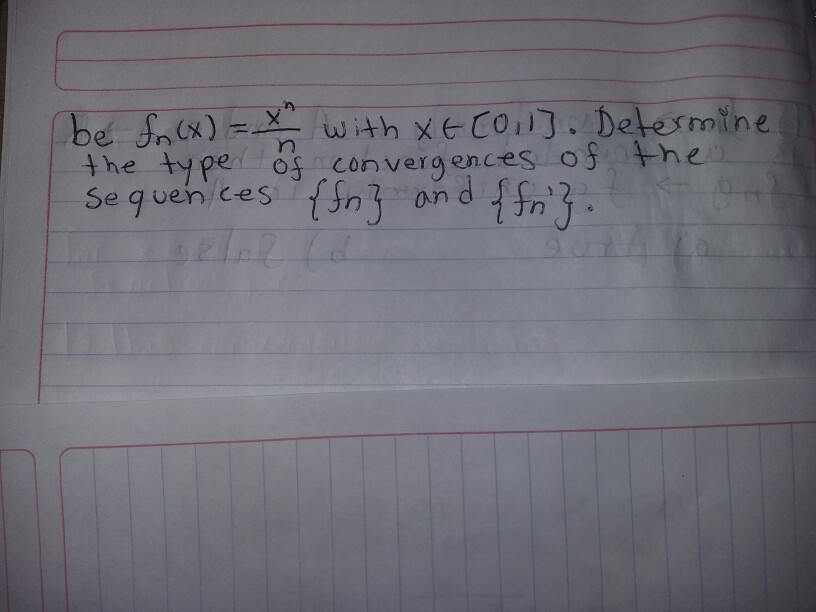 be fn(x) = xⁿ/n with x ∈ [0,1]. Determine
the type of convergences of the
sequences {fn} and {fn'}.